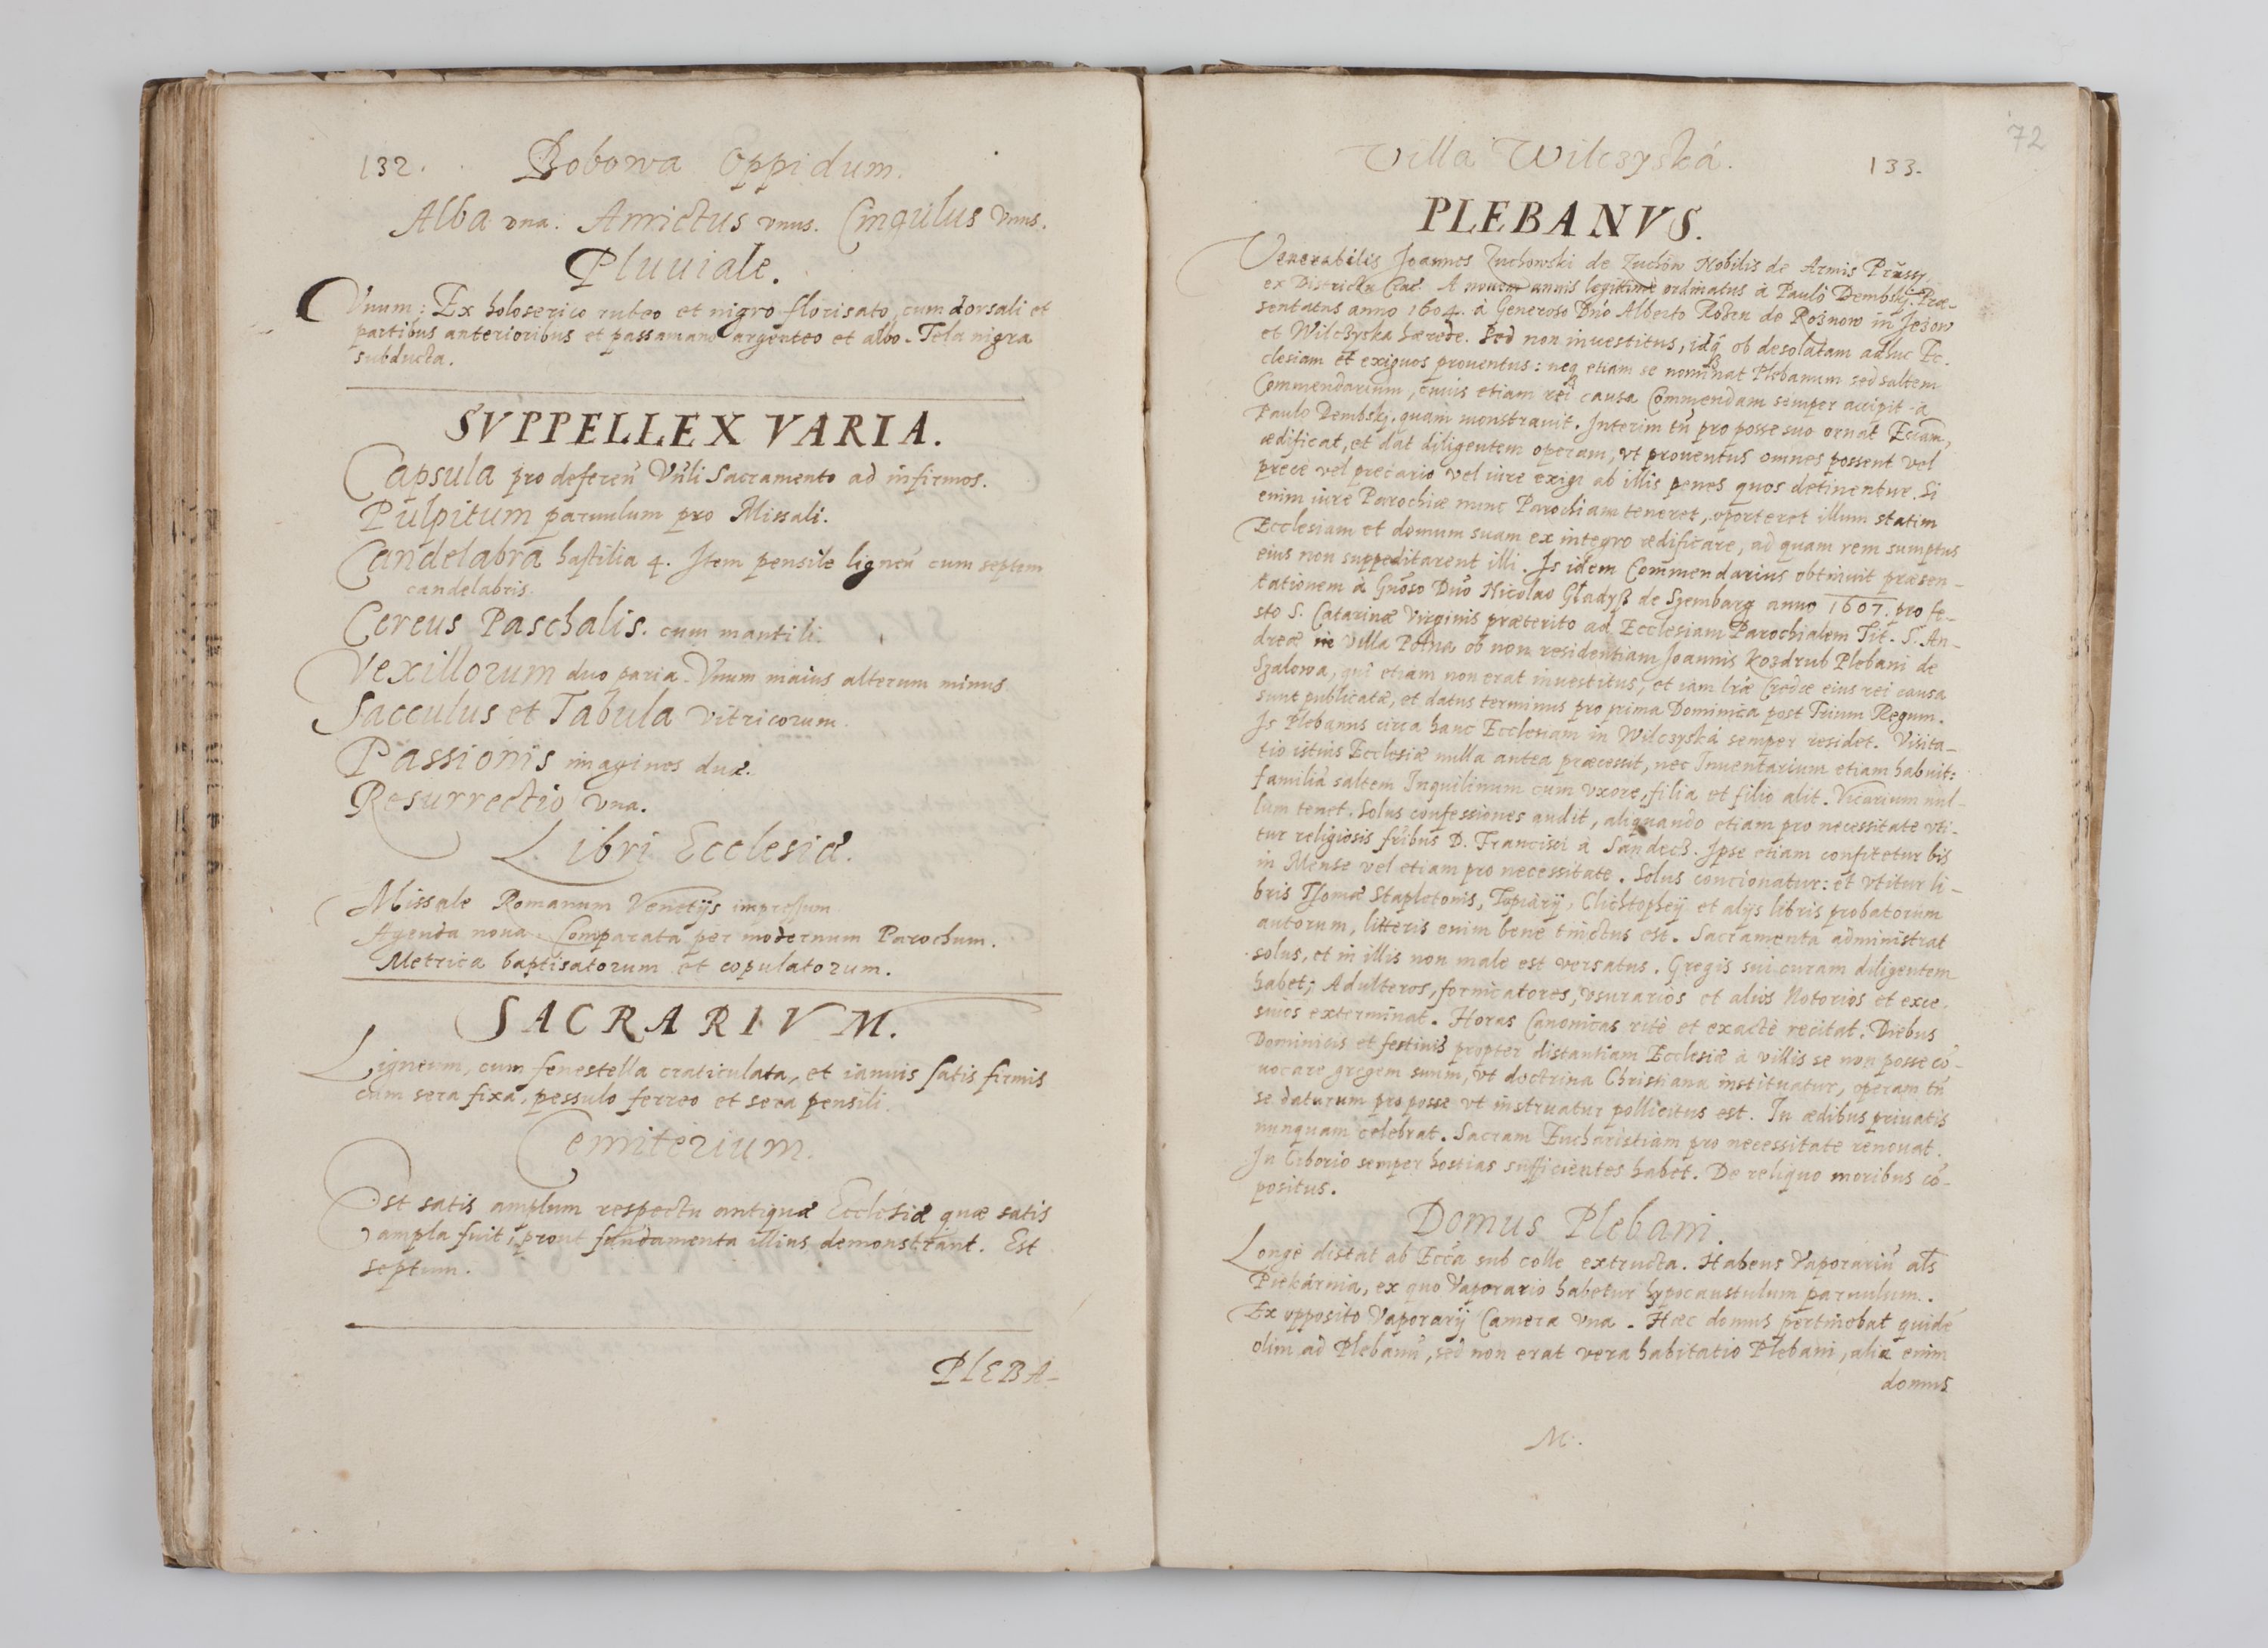 132. Bobowa Oppidum.
Alba vna. Amictus vnus. Cingulus vnus.
Pluuiale.
Vnum: Ex holoserico rubeo et nigro florisato, cum dorsali et
partibus anterioribus et passamano argenteo et albo. Tela nigra
subducta.
SVPPELLEX VARIA.
Capsula pro deferen̄ Vn̄li Sacramento ad infirmos.
Pulpitum paruulum pro Missali.
Candelabra hastilia 4. Item pensile ligneū cum septem
candelabris.
Cereus Paschalis. cum mantili.
Vexillorum duo paria. Vnum maius alterum minus
Sacculus et Tabula Vitricorum.
Passionis imagines duæ.
Resurrectio vna.
Libri Ecclesiæ.
Missale Romanum Venetijs impressum
Agenda noua. Comparata per modernum Parochum.
Metrica baptisatorum et copulatorum.
SACRARIVM.
Ligneum, cum fenestella craticulata, et ianuis satis firmis
cum sera fixa, pessulo ferreo et sera pensili.
Cemiterium.
Est satis amplum respectu antiquæ Ecclesiæ quæ satis
ampla fuit, prout fundamenta illius demonstrant. Est
septum.
PLEBA-
72
Villa Wilczyská. 133.
PLEBANVS.
Venerabilis Joannes Zuchowski de Zuchów Nobilis de Armis Prussy
ex Districtu A nouem annis legittimè ordinatus à Paulo Dembskj. Præ-
sentatus anno 1604. à Generoso Dn̄o Alberto Rożen de Rożnow in Jeżow
et Wilczyska hærede. Sed non inuestitus, idq̃ ob desolatam adhuc Ec-
clesiam et exiguos prouentus: neq̃ etiam se nominat Plebanum sed saltem
Commendarium, cuius etiam rei causa Commendam semper accipit à
Paulo Dembskj. quam monstrauit. Interim tn̄ pro posse suo ornat Ecciam,
ædificat, et dat diligentem operam, vt prouentus omnes possent vel
prece vel precario vel iure exigi ab illis penes quos detinentur. Si
enim iure Parochiæ nunc Parochiam teneret, oporteret illum statim
Ecclesiam et domum suam ex integro ædificare, ad quam rem sumptus
eius non suppeditarent illi. Is idem Commendarius obtinuit præsen-
tationem à Gn̄oso Dn̄o Nicolao Gładyß de Szembarg anno 1607. pro fe-
sto S. Catarinæ Virginis præterito ad Ecclesiam Parochialem Tit. S. An-
dreæ in Villa Polna ob non residentiam Joannis Kozdrub Plebani de
Szalowa, qui etiam non erat inuestitus, et iam lr̄æ Credæ eius rei causa
sunt publicatæ, et datus terminus pro prima Dominica post Trium Regum.
Is Plebanus circa hanc Ecclesiam in Wilczyská semper residet. Visita-
tio istius Ecclesiæ nulla antea præcessit, nec Inuentarium etiam habuit:
familiā saltem Inquilinum cum vxore, filia et filio alit. Vicarium nul-
lum tenet. Solus confessiones audit, aliquando etiam pro necessitate vti-
tur religiosis fr̄ibus D. Francisci à Sandecz. Ipse etiam confitetur bis
in Mense vel etiam pro necessitate. Solus concionatur: et vtitur li-
bris Thomæ Stapletonis, Topiarij, Clichtophej et alijs libris probatorum
autorum, litteris enim bene tinctus est. Sacramenta administrat
solus, et in illis non male est versatus. Gregis sui curam diligentem
habet; Adulteros, fornicatores, vsurarios et alios Notorios et exce-
siuos exterminat. Horas Canonicas ritè et exactè recitat. Diebus
Dominicis et festiuis propter distantiam Ecclesiæ à villis se non posse cō-
uocare gregem suum, vt doctrina Christiana instituatur, operam tn̄
se daturum pro posse vt instruatur pollicitus est. In ædibus priuatis
nunquam celebrat. Sacram Eucharistiam pro necessitate renouat.
In Ciborio semper hostias sufficientes habet. De reliquo moribus cō-
positus.
Domus Plebani.
Longè distat ab Ecc̄a sub colle extructa. Habens Vaporariū al̄s
Piekárnia, ex quo Vaporario habetur hypocaustulum paruulum.
Ex opposito Vaporarij Camera vna. Hæc domus pertinebat quidē
olim ad Plebanū, sed non erat vera habitatio Plebani, alia enim
domus
M.